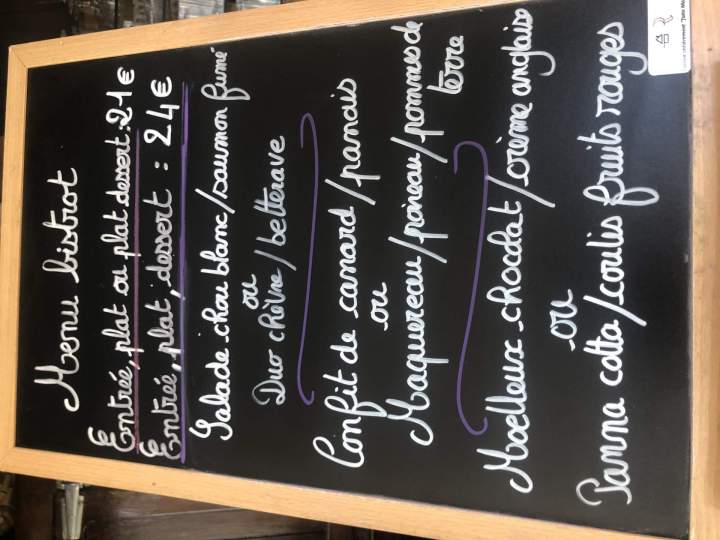 Menu bistrot
Entrée, plat ou plat dessert : 21 €
Entrée, plat, dessert : 24 €
Salade chou blanc / saumon fumé
ou
Duo chèvre / betterave
Confit de canard / panais
ou
Maquereau / poireau / pommes de
terre
Moelleux chocolat / crème anglaise
ou
Panna cotta / coulis fruits rouges